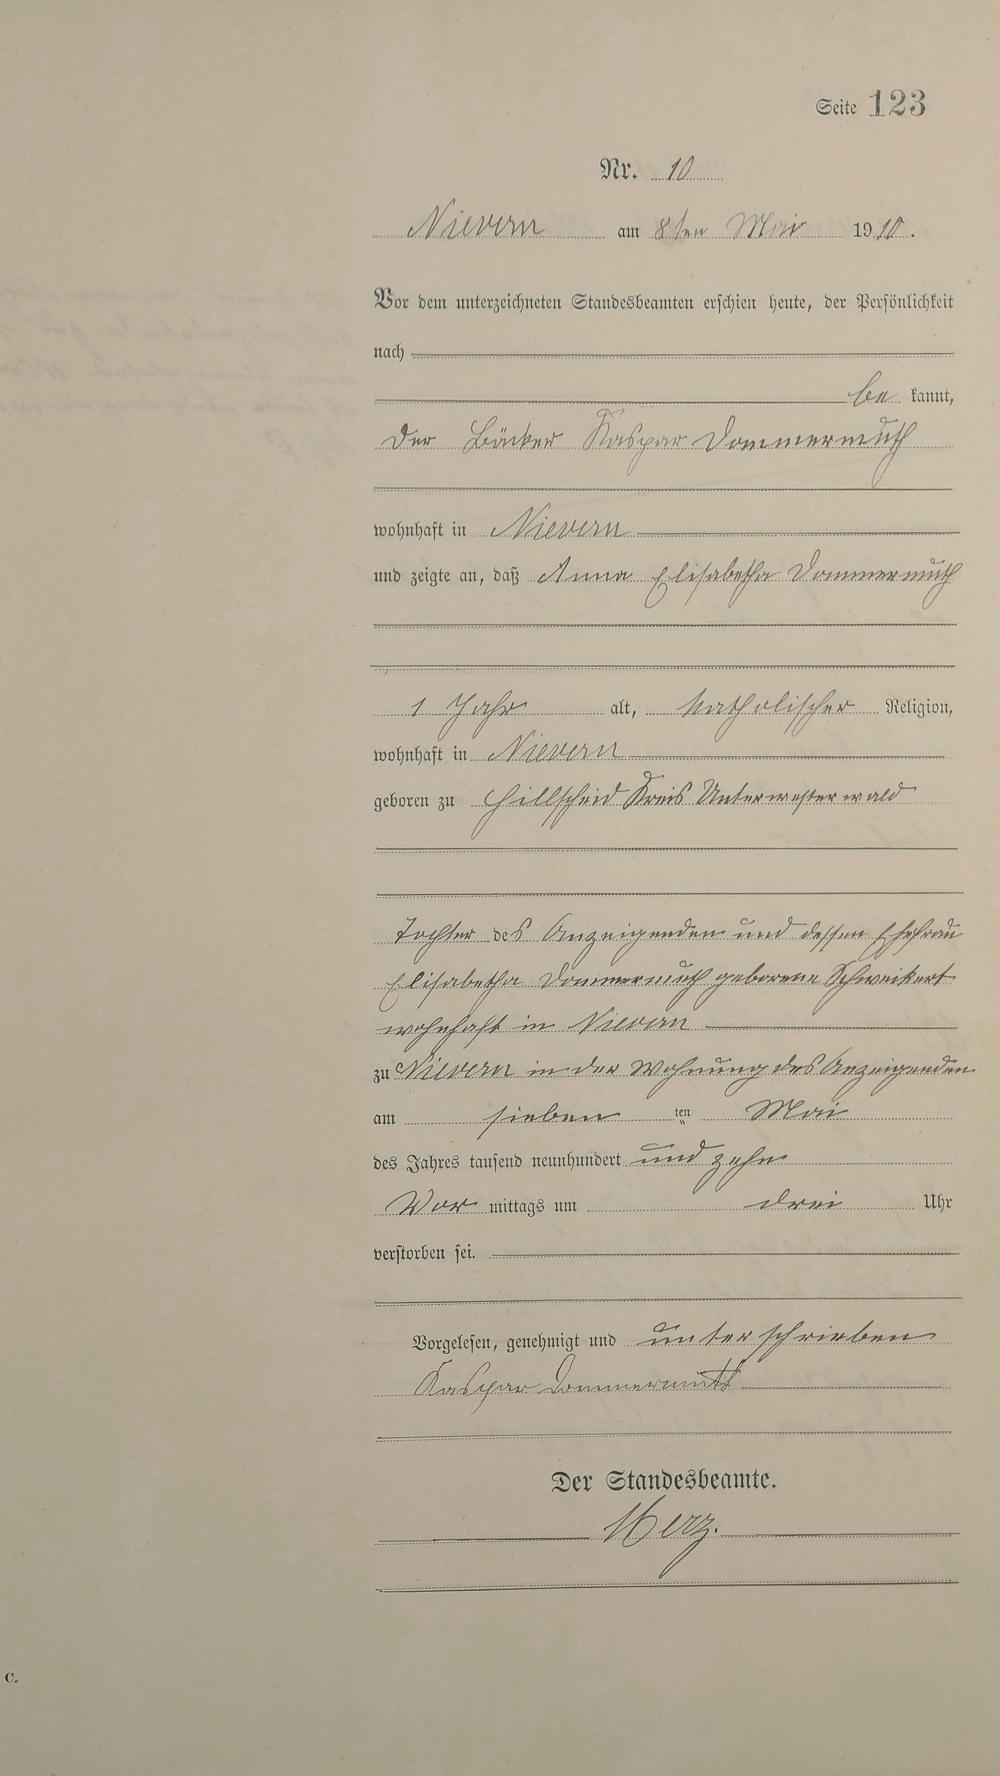 Seite 123
Nr. 10
Nievern am 8ten Mai 1910.
Vor dem unterzeichneten Standesbeamten erschien heute, der Persönlichkeit
nach
be kannt,
der Bäcker Kaspar Dommermuth
wohnhaft in Nievern
und zeigte an, daß Anna Elisabetha Dommermuth
1 Jahr alt, katholischer Religion,
wohnhaft in Nievern
geboren zu Hillscheid Kreis Unterwesterwald
Tochter des Anzeigenden und dessen Ehefrau
Elisabetha Dommermuth geborene Schweikert
wohnhaft in Nievern
zu Nievern in der Wohnung des Anzeigenden
am sieben ten Mai
des Jahres tausend neunhundert und zehn
Vor mittags um drei Uhr
verstorben sei.
Vorgelesen, genehmigt und unterschrieben
Kaspar Dommermuth
Der Standesbeamte.
Merz.
C.